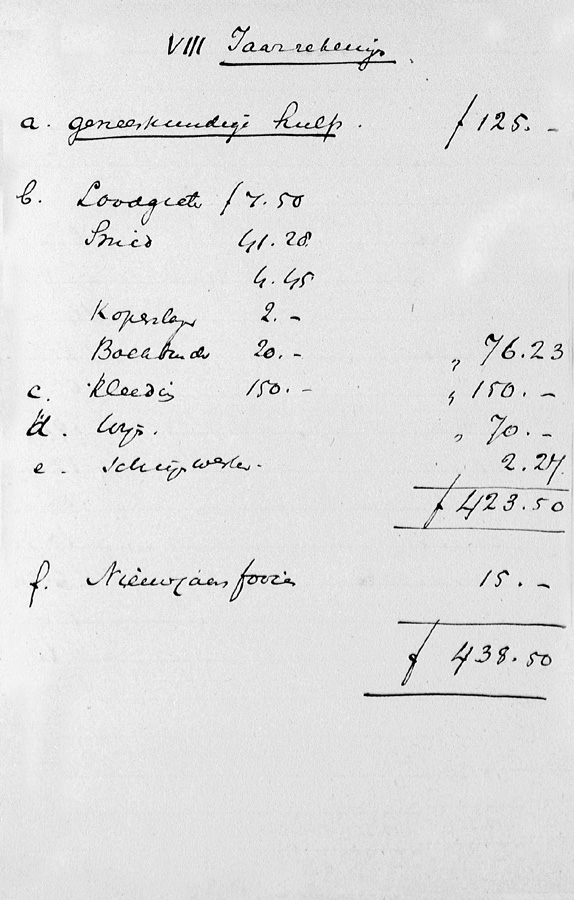 VIII Jaarrekening
a. geneeskundige hulp. f 125.-
b. Loodgieter f 7.50
Smid 41.28
4.45
Koperslager 2.-
Boekbinder 20.- „ 76.23
c. Kleeding 150.- „ 150.-
d. „ 70.-
e. 2.27
f 423.50
f. Nieuwjaarsfooien 15.-
f 438.50